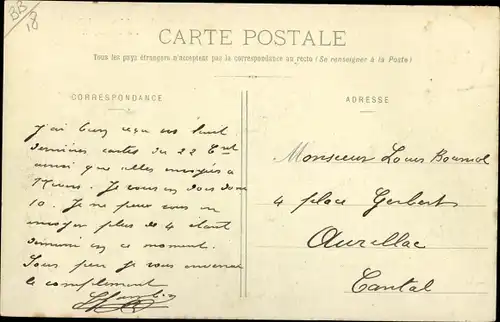 BB
18
CARTE POSTALE
Tous les pays étrangers n'acceptent pas la correspondance au recto (Se renseigner à la Poste)
CORRESPONDANCE
ADRESSE
j'ai bien reçu vos huit
dernières cartes du 22 Cnt
ainsi que celles envoyées à
Je vous en dois donc
10. Je ne peux vous en
envoyer plus de 4 étant
démuni en ce moment.
Sous peu je vous enverrai
le complément
Monsieur Louis
4 place Gerbert
Aurillac
Cantal